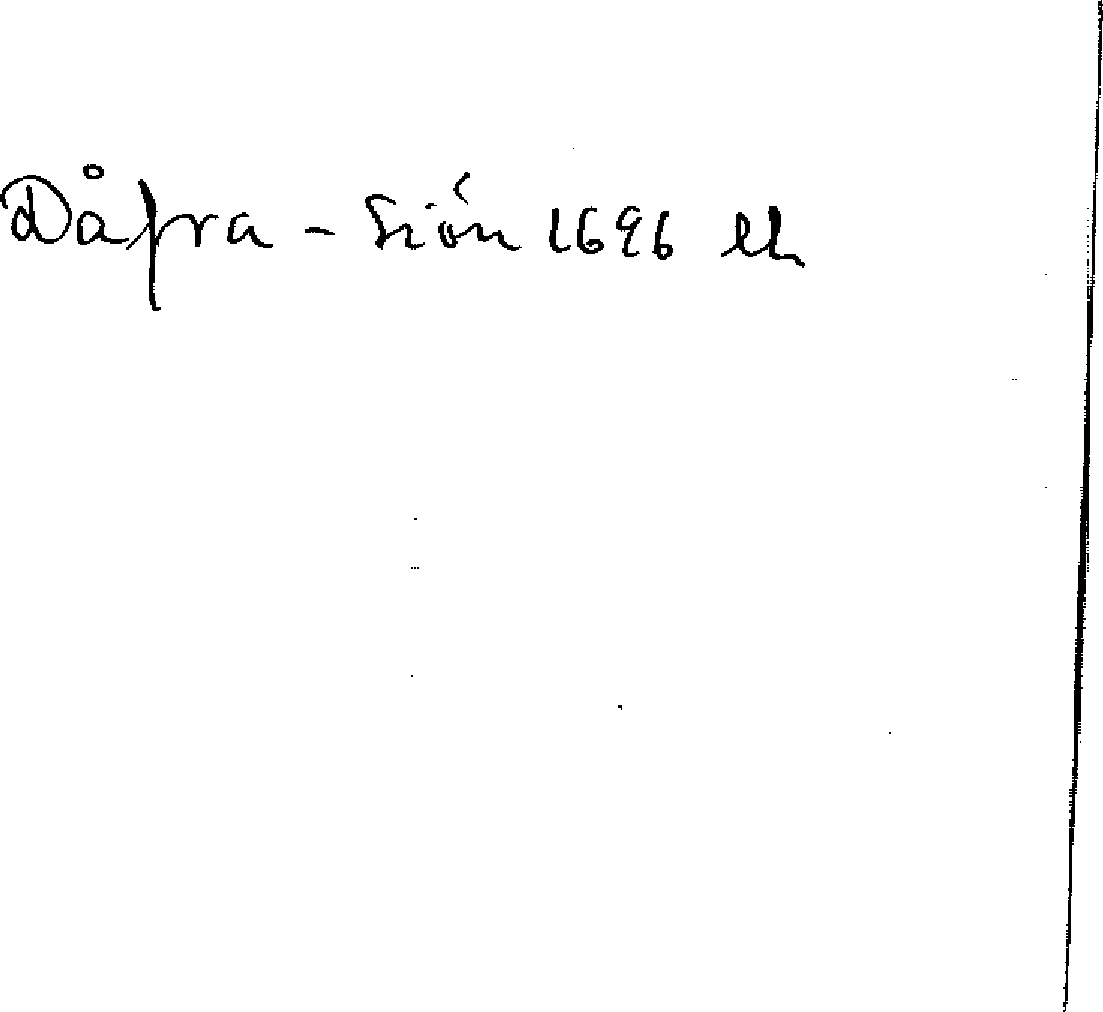 Dåpra - Sión 1696 el